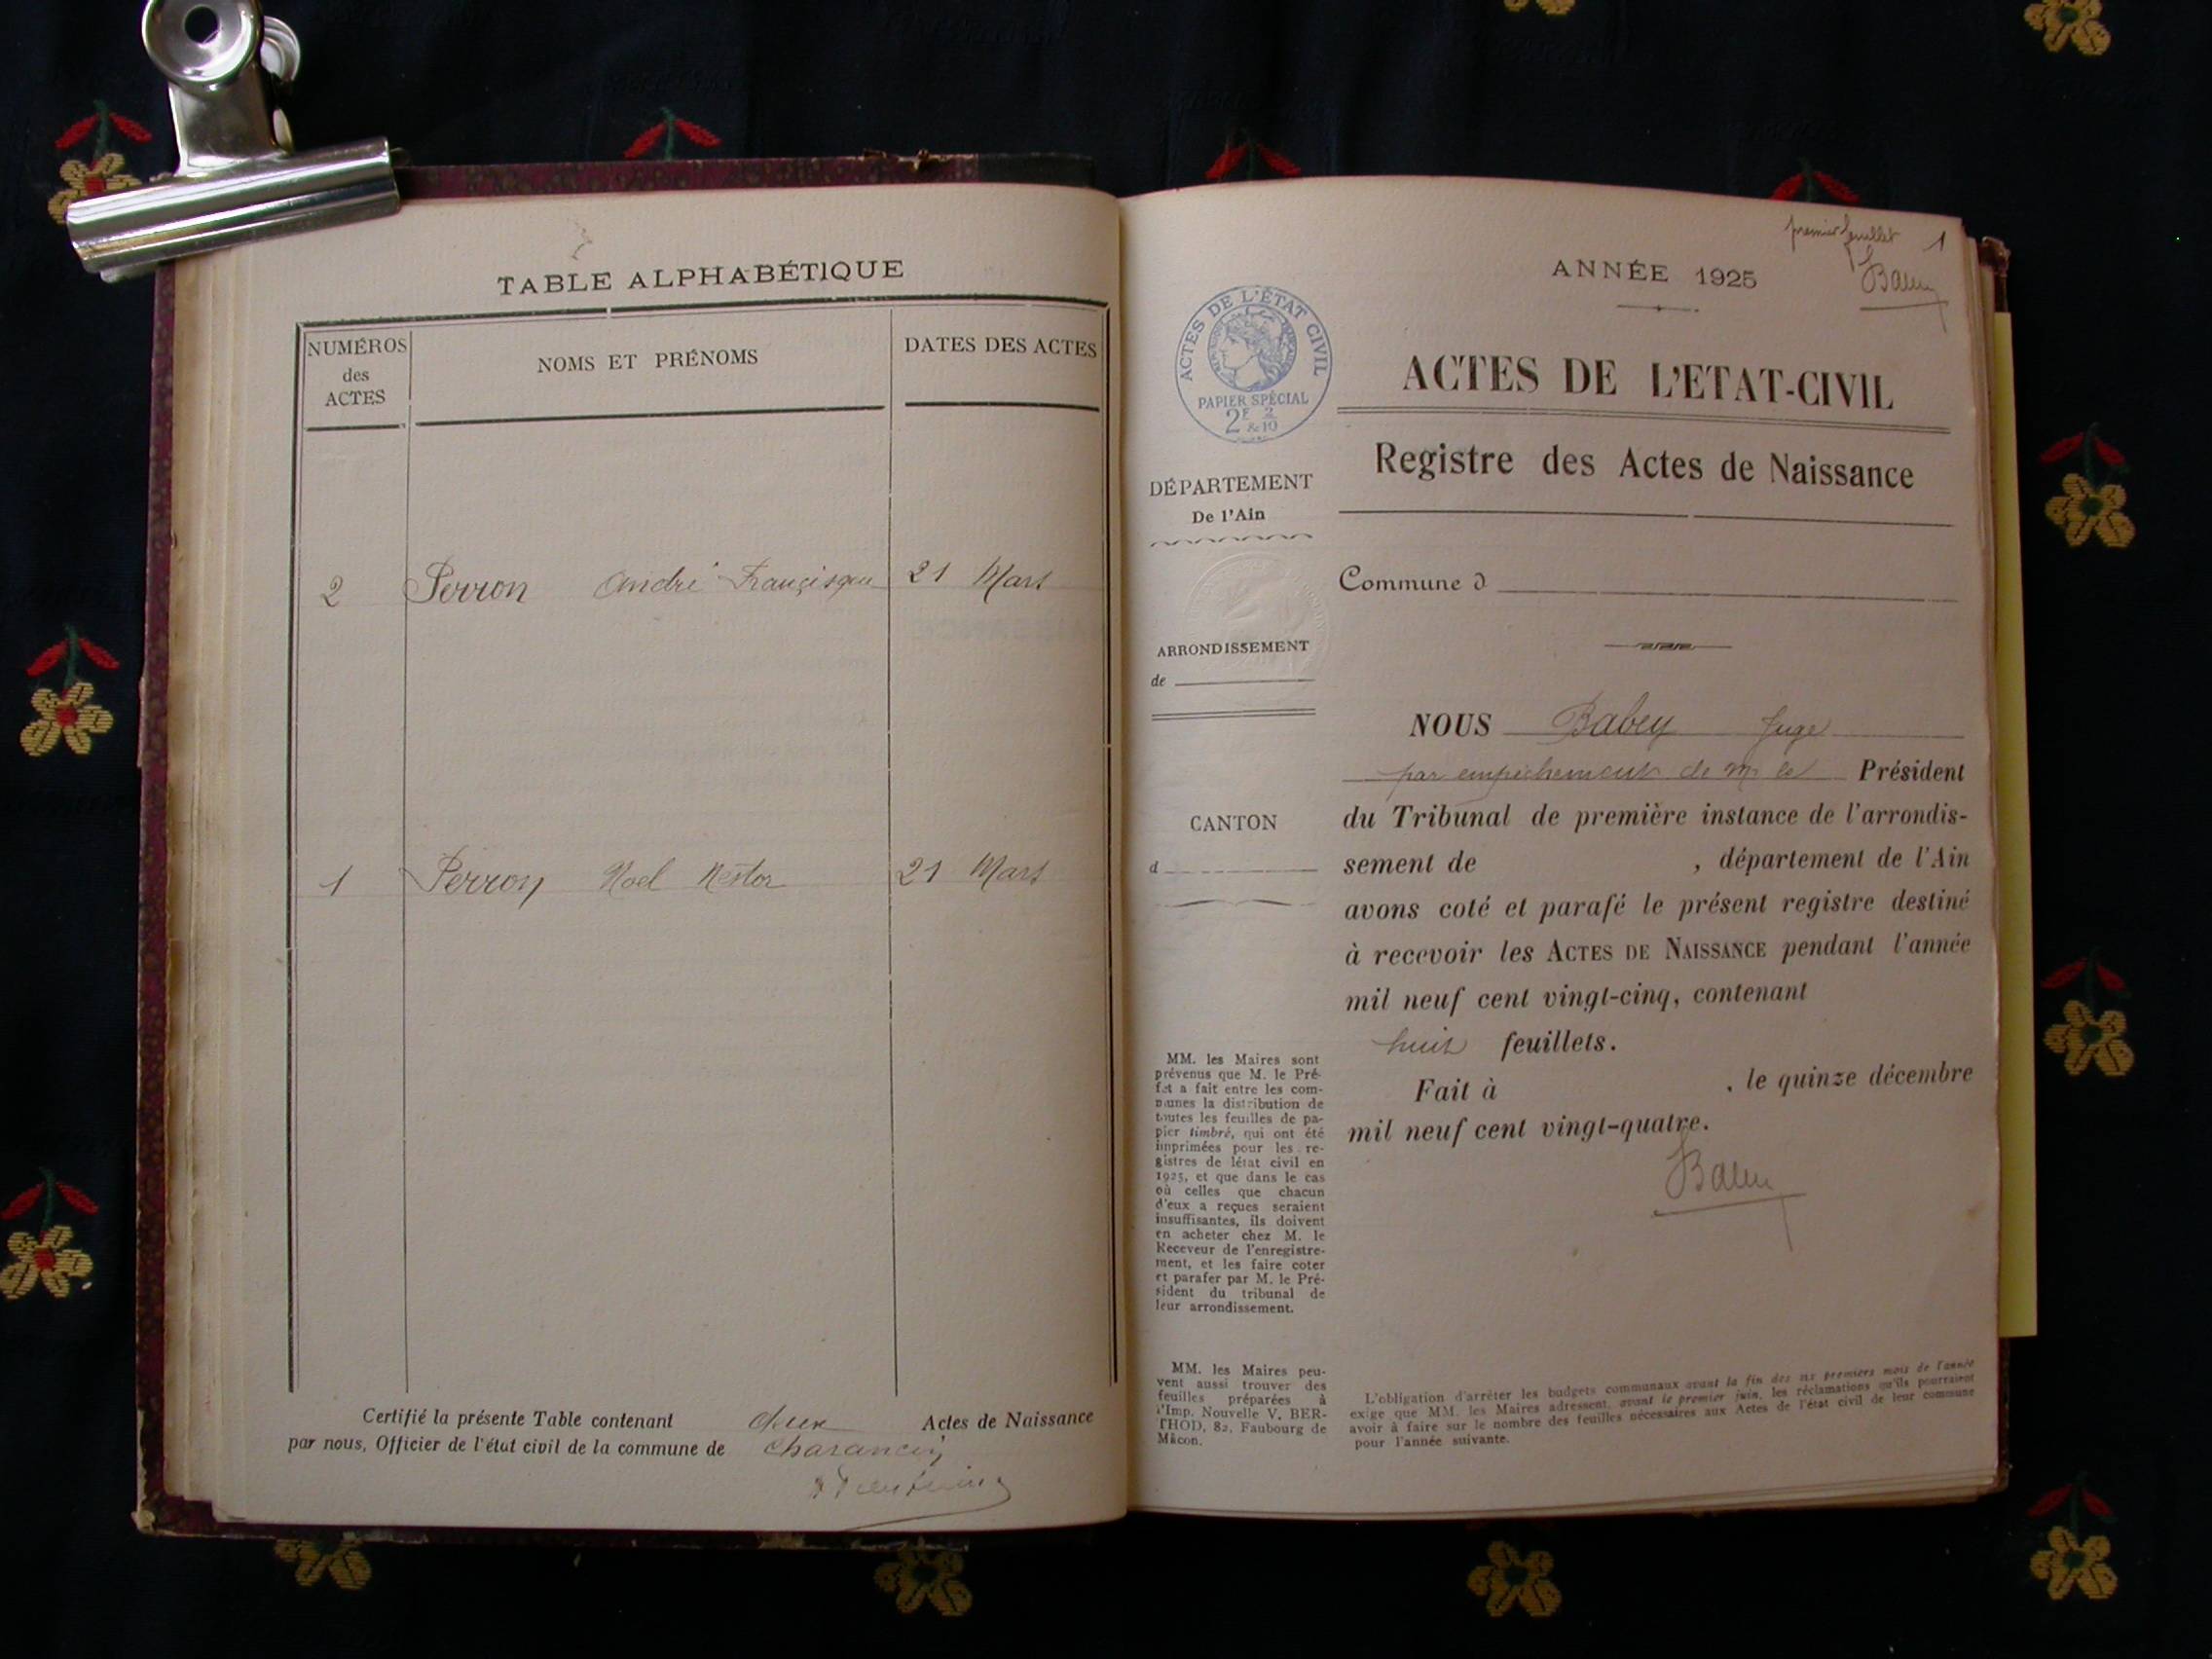 TABLE ALPHABÉTIQUE
NUMÉROS des ACTES
NOMS ET PRÉNOMS
DATES DES ACTES
2 Perron André Françisque 21 Mars
1 Perron Noel Nestor 21 Mars
Certifié la présente Table contenant deux Actes de Naissance
par nous, Officier de l'état civil de la commune de Charancin
premier feuillet 1
ANNÉE 1925
ACTES DE L'ÉTAT CIVIL
PAPIER SPÉCIAL
2F & 2/10
ACTES DE L'ETAT-CIVIL
Registre des Actes de Naissance
DÉPARTEMENT
De l'Ain
Commune d
ARRONDISSEMENT
de
CANTON
d
NOUS Babey Juge
par empêchement de Mr le Président
du Tribunal de première instance de l'arrondis-
sement de , département de l'Ain
avons coté et parafé le présent registre destiné
à recevoir les ACTES DE NAISSANCE pendant l'année
mil neuf cent vingt-cinq, contenant
huit feuillets.
Fait à , le quinze décembre
mil neuf cent vingt-quatre.
MM. les Maires sont
prévenus que M. le Pré-
fet a fait entre les com-
munes la distribution de
toutes les feuilles de pa-
pier timbré, qui ont été
imprimées pour les re-
gistres de létat civil en
1925, et que dans le cas
où celles que chacun
d'eux a reçues seraient
insuffisantes, ils doivent
en acheter chez M. le
Receveur de l'enregistre-
ment, et les faire coter
et parafer par M. le Pré-
sident du tribunal de
leur arrondissement.
MM. les Maires peu-
vent aussi trouver des
feuilles préparées à
l'Imp. Nouvelle V. BER-
THOD, 82, Faubourg de
Mâcon.
L'obligation d'arrêter les budgets communaux avant la fin des six premiers mois de l'année
exige que MM. les Maires adressent, avant le premier juin, les réclamations qu'ils pourraient
avoir à faire sur le nombre des feuilles nécessaires aux Actes de l'état civil de leur commune
pour l'année suivante.